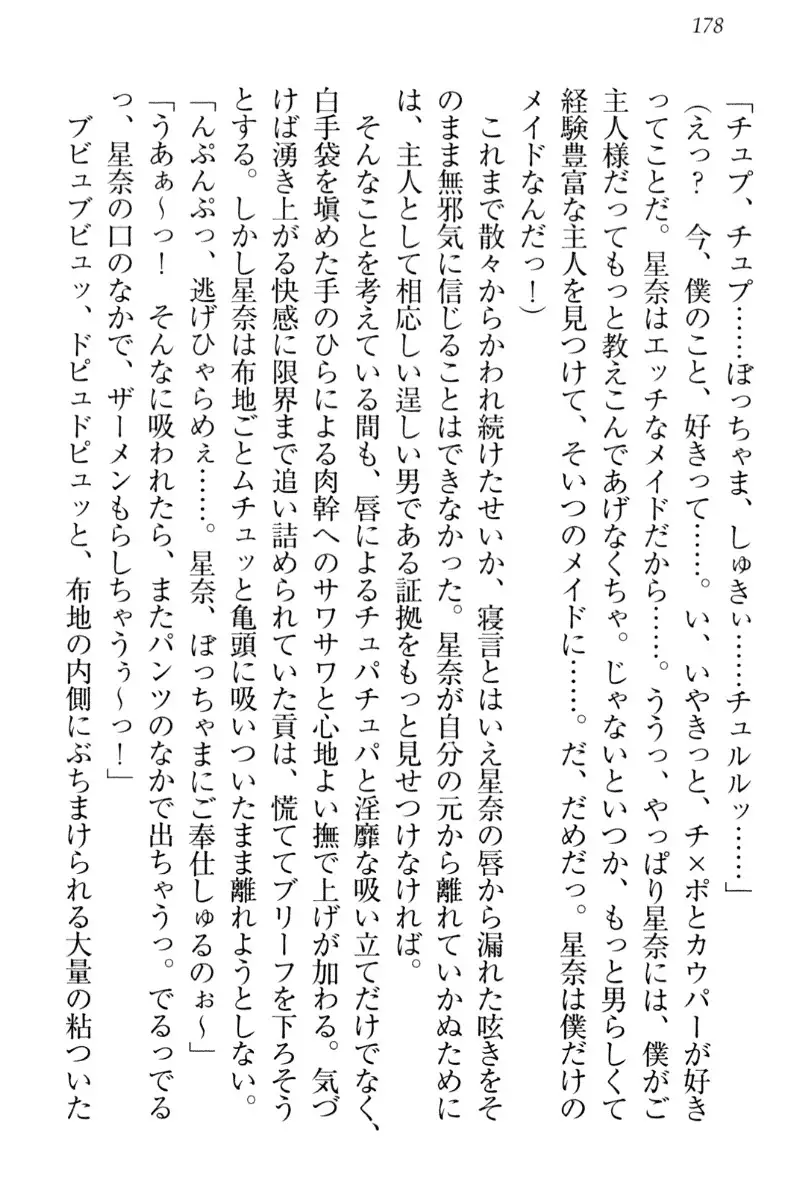 178
「チュプ、チュプ……ぼっちゃま、しゅきぃ……チュルルッ……」
（えっ？　今、僕のこと、好きって……。い、いやきっと、チ×ポとカウパーが好き
ってことだ。星奈はエッチなメイドだから……。ううっ、やっぱり星奈には、僕がご
主人様だってもっと教えこんであげなくちゃ。じゃないといつか、もっと男らしくて
経験豊富な主人を見つけて、そいつのメイドに……。だ、だめだっ。星奈は僕だけの
メイドなんだっ！）
これまで散々からかわれ続けたせいか、寝言とはいえ星奈の唇から漏れた呟きをそ
のまま無邪気に信じることはできなかった。星奈が自分の元から離れていかぬために
は、主人として相応しい逞しい男である証拠をもっと見せつけなければ。
そんなことを考えている間も、唇によるチュパチュパと淫靡な吸い立てだけでなく、
白手袋を填めた手のひらによる肉幹へのサワサワと心地よい撫で上げが加わる。気づ
けば湧き上がる快感に限界まで追い詰められていた貢は、慌ててブリーフを下ろそう
とする。しかし星奈は布地ごとムチュッと亀頭に吸いついたまま離れようとしない。
「んぷんぷっ、逃げひゃらめぇ……。星奈、ぼっちゃまにご奉仕しゅるのぉ〜」
「うあぁ〜っ！　そんなに吸われたら、またパンツのなかで出ちゃうっ。でるっでる
っ、星奈の口のなかで、ザーメンもらしちゃうぅ〜っ！」
ブビュブビュッ、ドピュドピュッと、布地の内側にぶちまけられる大量の粘ついた